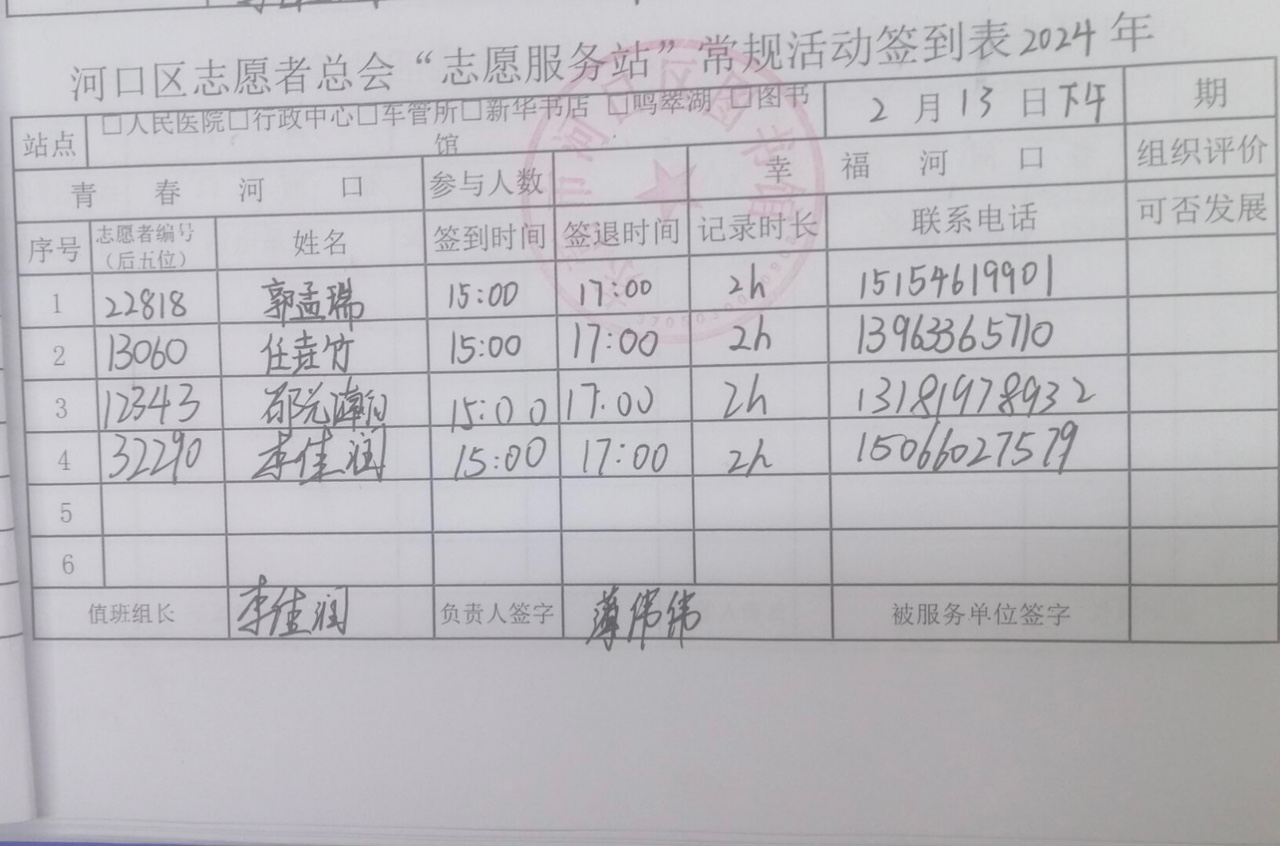 河口区志愿者总会“志愿服务站”常规活动签到表2024年
站点 □人民医院□行政中心□车管所□新华书店 □鸣翠湖 □图书馆 2月13日下午 期
青春河口 参与人数 幸福河口 组织评价
序号 志愿者编号（后五位） 姓名 签到时间 签退时间 记录时长 联系电话 可否发展
1 22818 郭孟瑞 15:00 17:00 2h 15154619901
2 13060 任垚竹 15:00 17:00 2h 13963365710
3 12343 15:00 17:00 2h 13181978932
4 32290 李佳润 15:00 17:00 2h 15066027579
5
6
值班组长 李佳润 负责人签字 薄伟伟 被服务单位签字